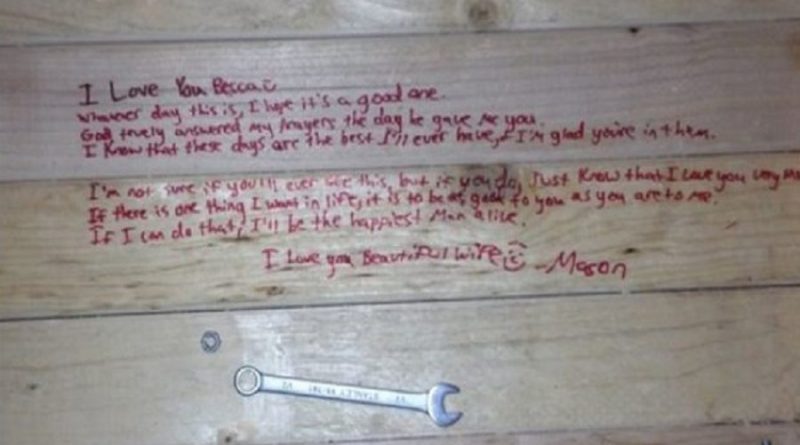 I Love You Becca
Whatever day this is, I hope it's a good one.
God truely answered my prayers the day he gave me you.
I know that these days are the best I'll ever have, & I'm glad you're in them.
I'm not sure if you'll ever see this, but if you do, Just know that I love you very
If there is one thing I want in life, it is to be as good to you as you are to me.
If I can do that, I'll be the happiest Man alive.
I Love you Beautiful Wife, -Mason
STANLEY